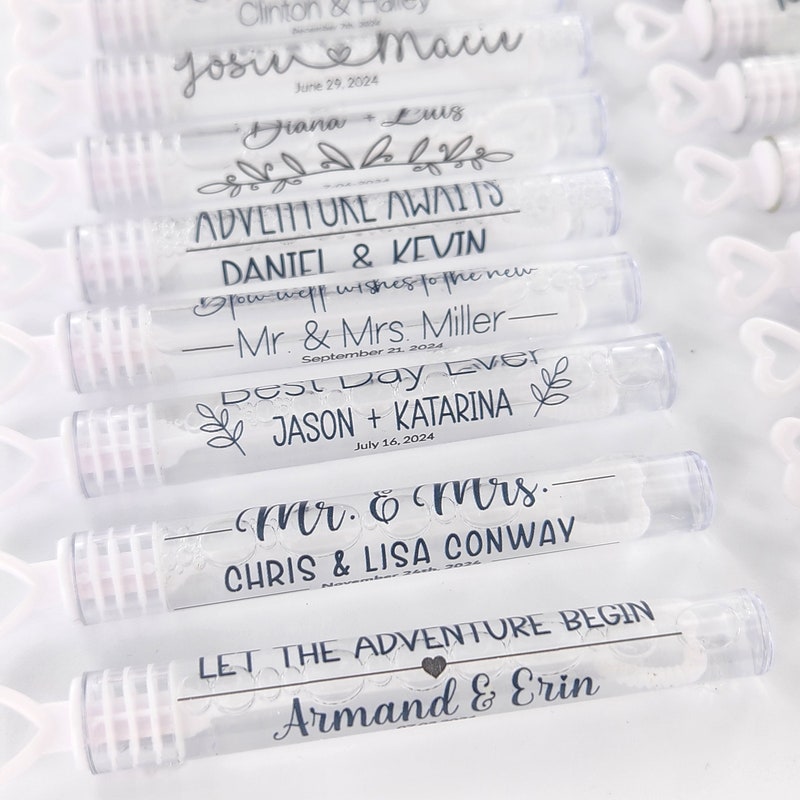 Clinton & Hailey
Josie Macie
June 29, 2024
Diana + Luis
ADVENTURE AWAITS
DANIEL & KEVIN
Blow well wishes to the new
Mr. & Mrs. Miller
September 21, 2024
Best Day Ever
JASON + KATARINA
July 16, 2024
Mr. & Mrs.
CHRIS & LISA CONWAY
November 24th, 2024
LET THE ADVENTURE BEGIN
Armand & Erin